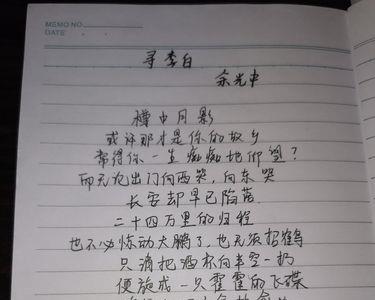 MEMO NO.
DATE
寻李白
余光中
樽中月影
或许那才是你的故乡
常得你一生痴痴地仰望？
而无论出门向西哭，向东哭
长安却早已陷落
二十四万里的归程
也不必惊动大鹏了，也无须招鹤
只消把酒杯向半空一扔
便旋成一只霍霍的飞碟